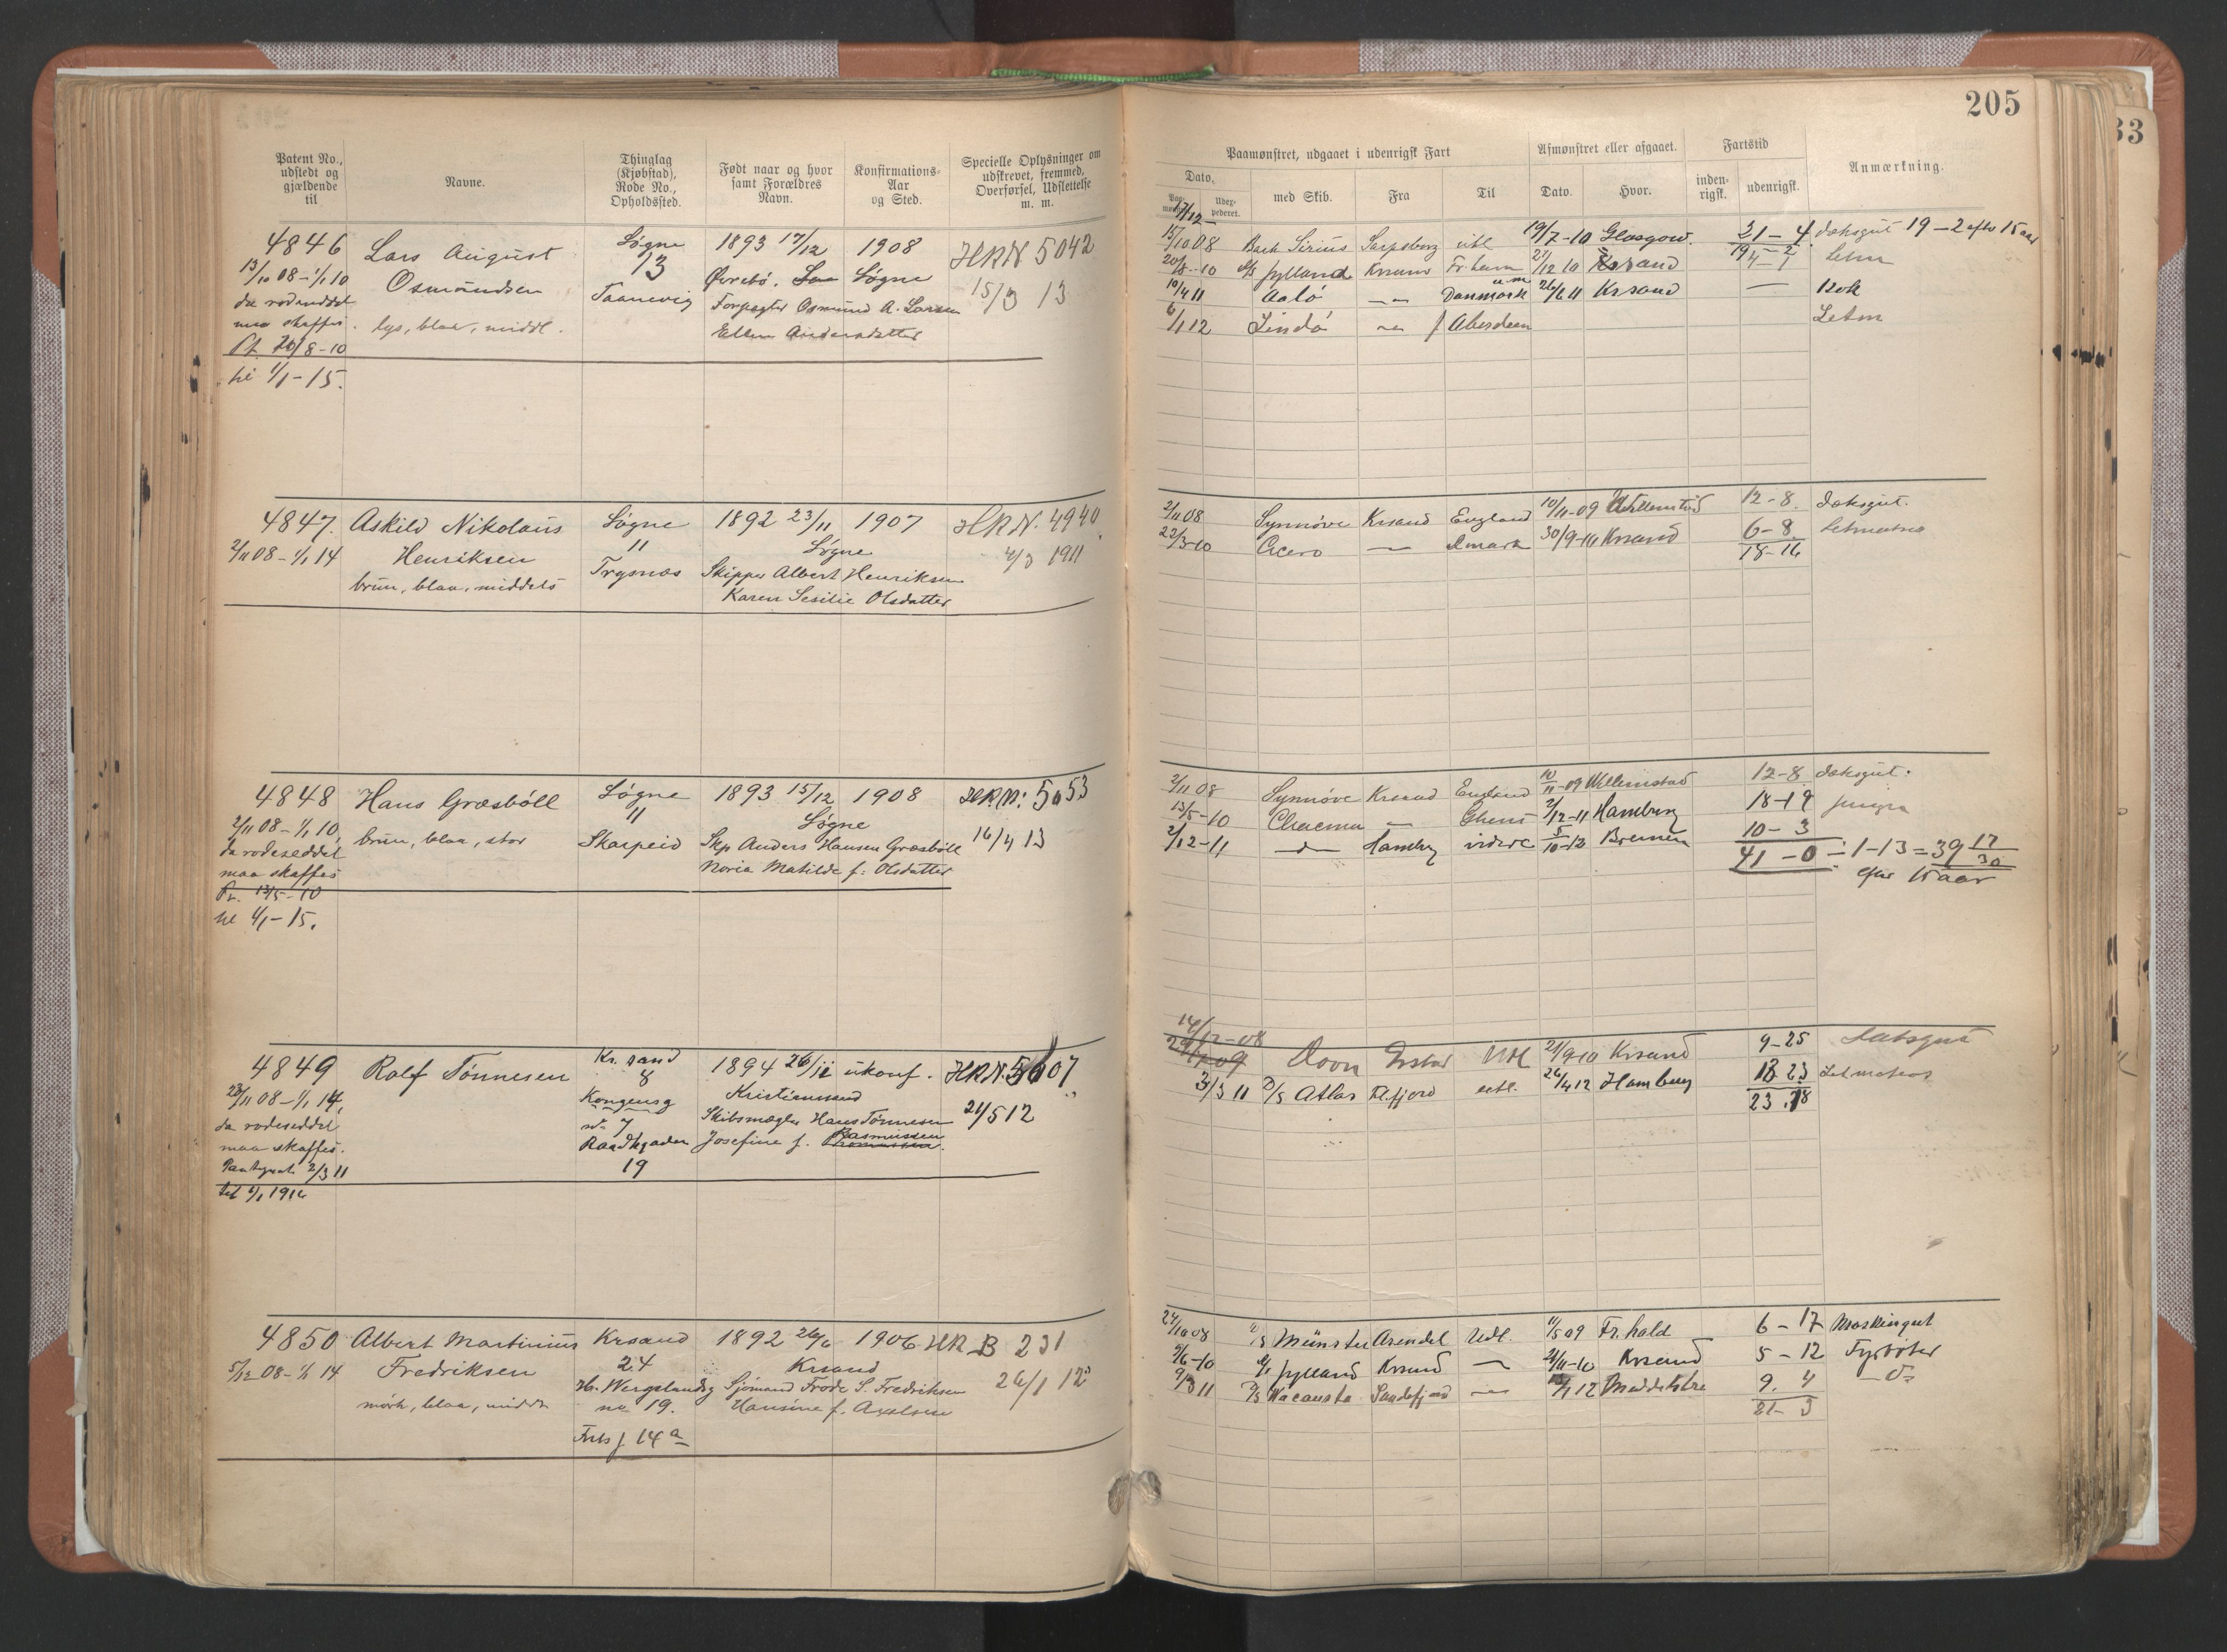 205
33
Patent No., udstedt og gjældende til
Navne.
Thinglag (Kjøbstad), Rode No., Opholdssted.
Født naar og hvor samt Forældres Navn.
Konfirmations-Aar og Sted.
Specielle Oplysninger om udskrevet, fremmed, Overførsel, Udslettelse m. m.
Paamønstret, udgaaet i udenrigsk Fart
Afmønstret eller afgaaet.
Fartstid
Anmærkning.
Dato.
med Skib.
Fra
Til
Dato.
Hvor.
inden-rigsk.
udenrigsk.
4846 Lars August Søgne 1893 17/12 1908 HRN 5042
13/10 08 - 1/1 10 Osmundsen 13 Øvrebø. Søgne 15/3 13
da rodeseddel Taanevig Forpagter Osmund A. Larsen
maa skaffes. lys, blaa, middl. Ellen Andersdatter
Pt. 20/8-10
til 1/1-15.
17/12
15/10 08 Bark Sirius Sarpsborg utl 19/7-10 Glasgow. 21-4 dæksgut 19-2 efter 15 aar
20/8-10 D/S Jylland Krsand Fr.havn 21/12 10 Krsand 4-1 Letm
10/4 11 Aalö -"- Danmark 26/6 11 Krsand — Kok
6/1 12 Lindö -"- Aberdeen Letm
4847. Askild Nikolaus Søgne 1892 23/11 1907 HRN. 4940
2/11 08 - 1/1 14 Henriksen 11 Søgne 4/3 1911
brun, blaa, middels Trysnæs Skipper Albert Henriksen
Karen Sesilie Olsdatter
2/11 08 Synnøve Krsand England 10/11-09 Willemstad 12-8 dæksgut.
22/3-10 Cicero — dmark 30/9-10 Krsand 6-8 Letmatros
18-16
4848 Hans Græsbøll Søgne 1893 15/12 1908 HRN: 5053
2/11 08 - 1/1 10, brun, blaa, stor 11 Søgne 16/4 13
da rodeseddel Skarpeid Skp Anders Hansen Græsbøll
maa skaffes Maria Matilde f: Olsdatter
Pt. 13/5-10
til 1/1-15.
2/11 08 Synnøve Krsand England 10/11-09 Willemstad 12-8 dæksgut.
13/5-10 Chacma — Ghent 2/12-11 Hamburg 18-19 jungm
2/12-11 -d- Hamburg videre 5/10-12 Bremen 10-3
41-0 ÷ 1-13 = 39 17/30
efter 15 aar
4849 Rolf Tønnesen Kr.sand 1894 26/11 ukonf. HRN. 5007
23/11 08 - 1/1 14, 8 Kristianssand 21/5 12
da rodeseddel Kongensg Skibsmægler Hans Tønnesen
maa skaffes. no 7 Josefine f. Rasmussen
2/3 11 Raadhgaden
til 1/1 1916 19
14/12-08
Doon Utl 21/9-10 Krsand 9-25 Dæksgut
3/3 11 D/S Atlas Fl.fjord utl. 26/4 12 Hamburg 18 23 Letmatros
23.18
4850 Albert Martinius Krsand 1892 26/6 1906 HR B 231
5/12 08 - 1/1 14 Fredriksen 24 Krsand 26/1 12
mørk, blaa, midd. H. Wergelandsg Sjømand Frode S. Fredriksen
no 19. Hansine f. Axelsen
14 a
24/10 08 D/S Münster Arendal Udl. 11/5 09 Fr.hald 6-17 Maskingut
2/6-10 D/S Jylland Krsand — 21/11-10 Krsand 5-12 Fyrbøter
9/3 11 D/S Wacousta Sandefjord -"- 12 9. 4 -do-
21-3